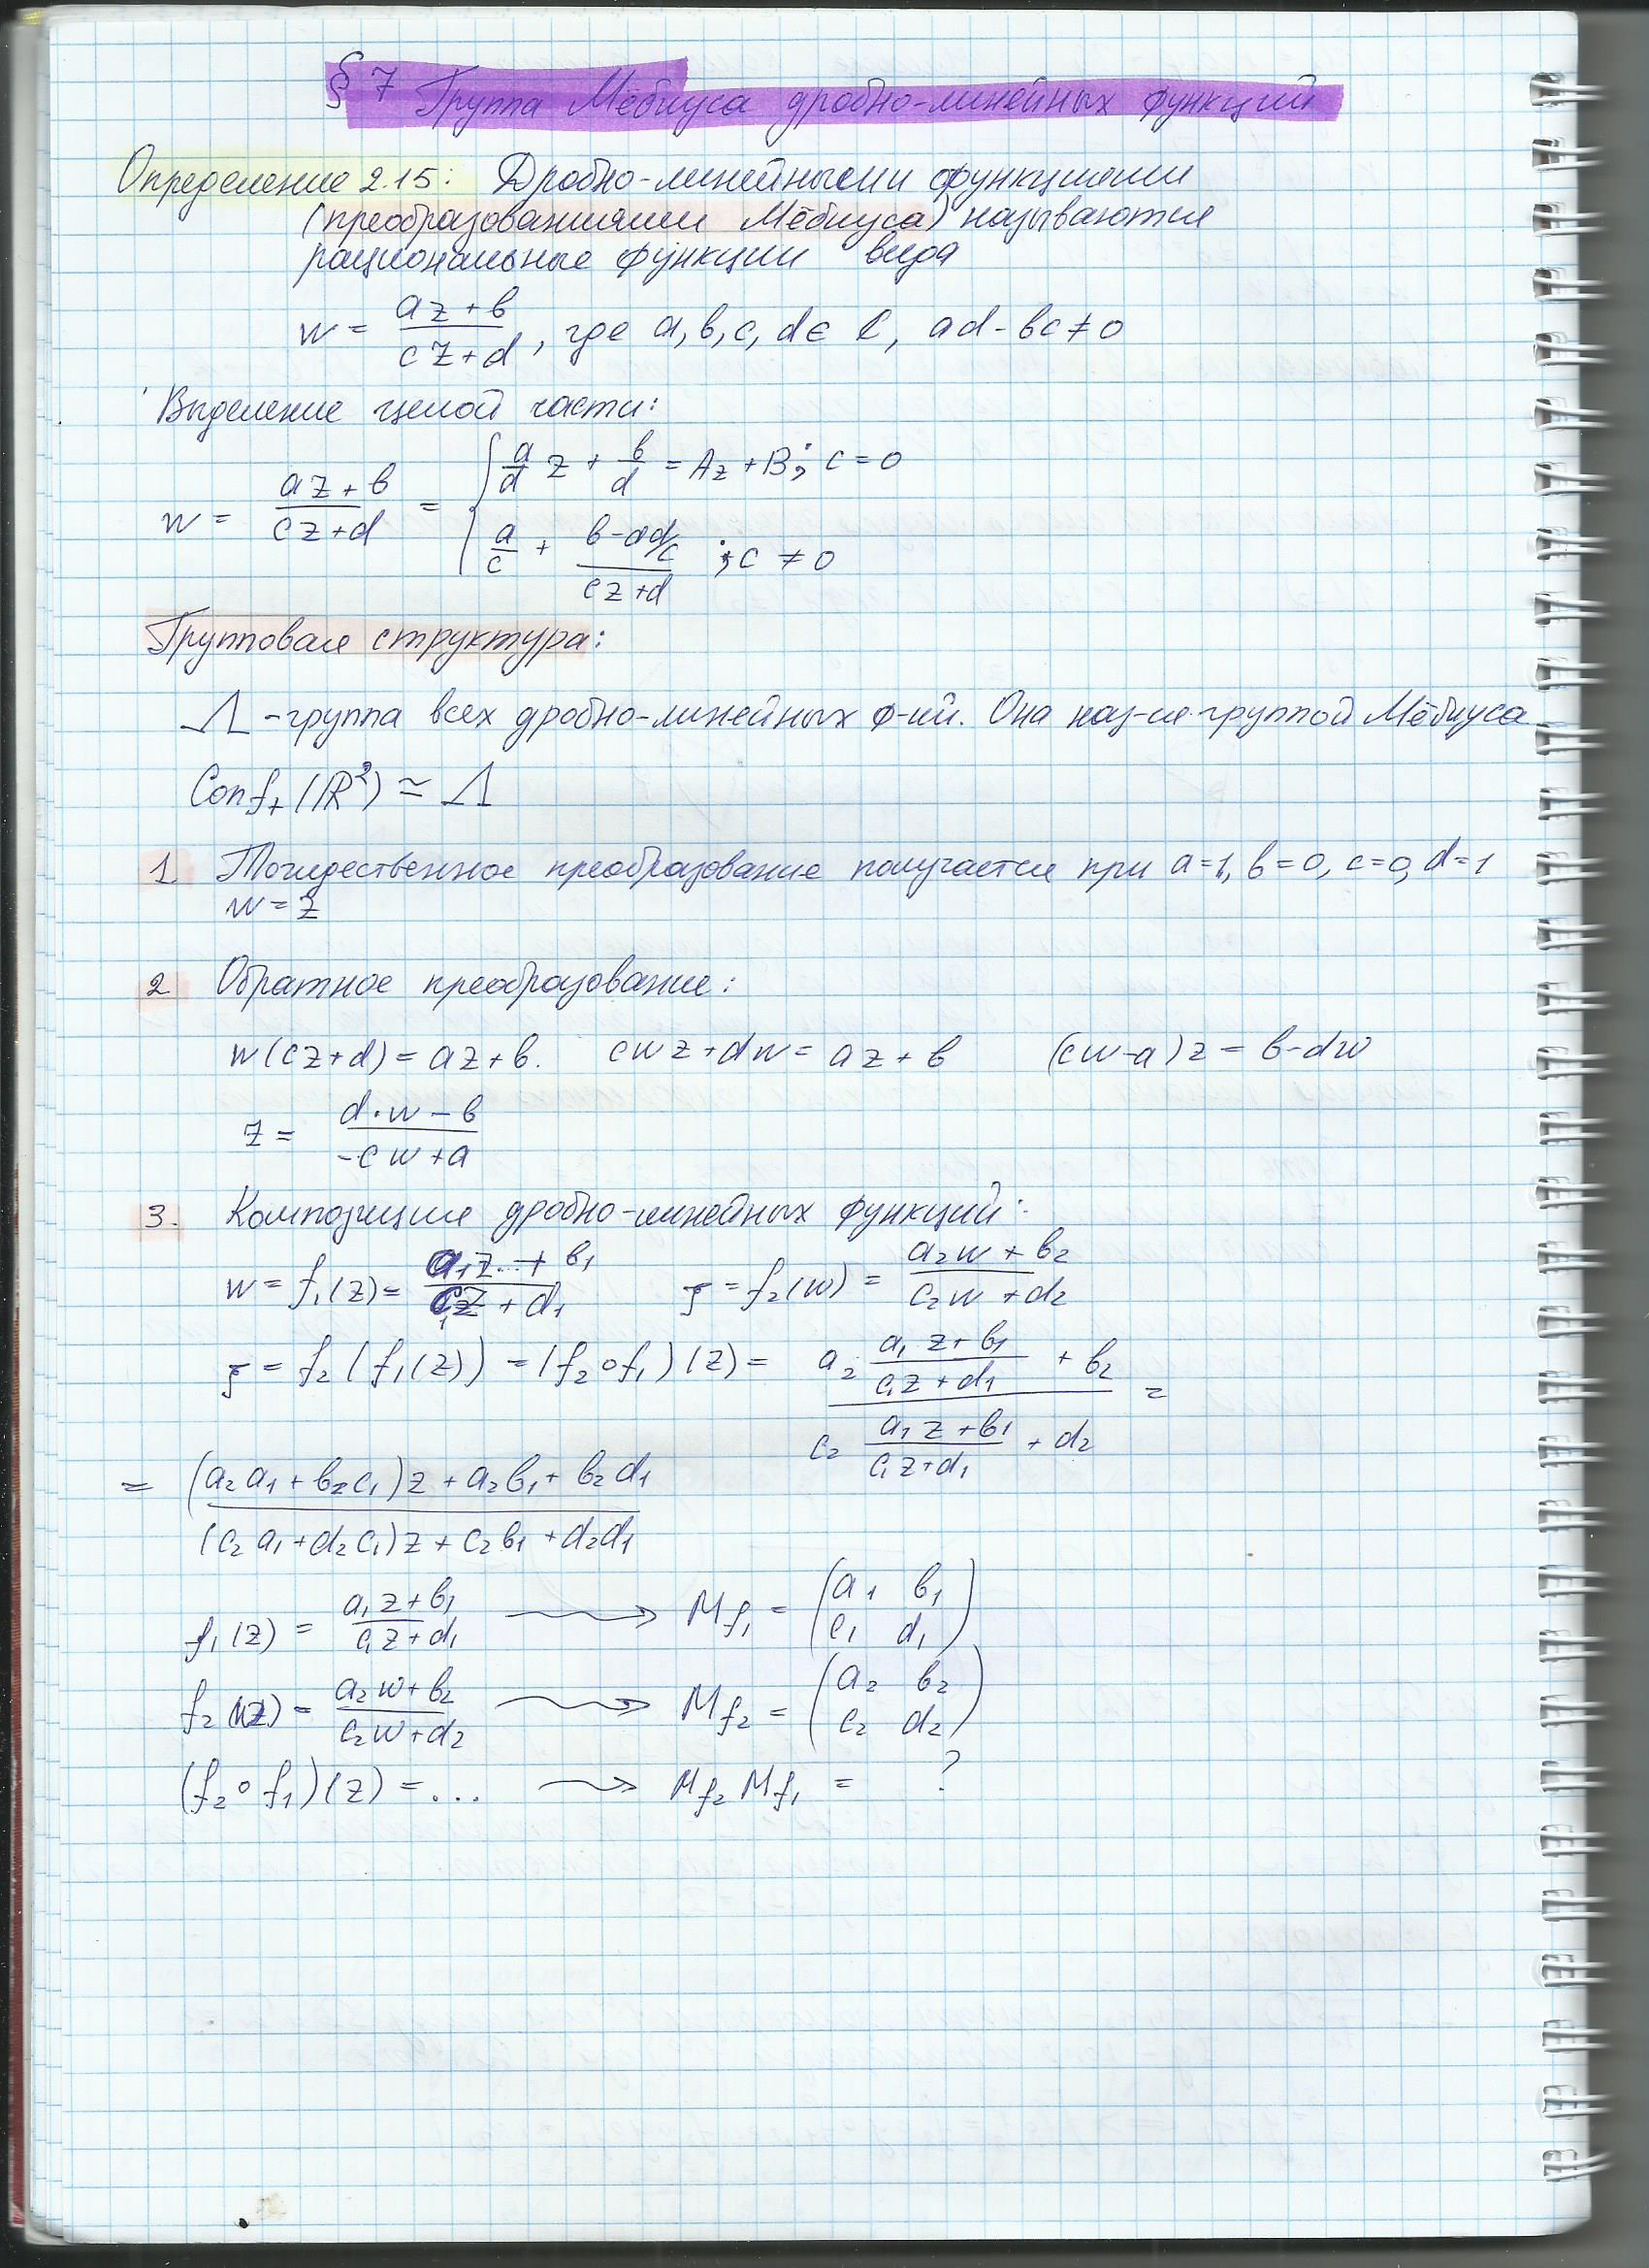 § 7 Группа Мёбиуса дробно-линейных функций
Определение 2.15: Дробно-линейными функциями
(преобразованиями Мёбиуса) называются
рациональные функции вида
w = \frac{az+b}{cz+d}, где a, b, c, d ∈ ℂ, ad - bc ≠ 0
Выделение целой части:
w = \frac{az+b}{cz+d} = \begin{cases} \frac{a}{d} z + \frac{b}{d} = Az + B; c = 0 \\ \frac{a}{c} + \frac{b - ad/c}{cz+d}; c ≠ 0 \end{cases}
Групповая структура:
Λ - группа всех дробно-линейных ф-ий. Она наз-ся группой Мёбиуса
Conf₊(ℝ²) ≃ Λ
1 Тождественное преобразование получается при a=1, b=0, c=0, d=1
w = z
2 Обратное преобразование:
w(cz+d) = az+b. cwz+dw = az+b (cw-a)z = b-dw
z = \frac{d·w - b}{-cw+a}
3. Композиция дробно-линейных функций:
w = f₁(z) = \frac{a₁z + b₁}{c₁z + d₁} ζ = f₂(w) = \frac{a₂w + b₂}{c₂w + d₂}
ζ = f₂(f₁(z)) = (f₂∘f₁)(z) = \frac{a₂ \frac{a₁z+b₁}{c₁z+d₁} + b₂}{c₂ \frac{a₁z+b₁}{c₁z+d₁} + d₂} =
= \frac{(a₂a₁+b₂c₁)z+a₂b₁+b₂d₁}{(c₂a₁+d₂c₁)z+c₂b₁+d₂d₁}
f₁(z) = \frac{a₁z+b₁}{c₁z+d₁} ⟿ M_{f₁} = \begin{pmatrix} a₁ & b₁ \\ c₁ & d₁ \end{pmatrix}
f₂(z) = \frac{a₂w+b₂}{c₂w+d₂} ⟿ M_{f₂} = \begin{pmatrix} a₂ & b₂ \\ c₂ & d₂ \end{pmatrix}
(f₂∘f₁)(z) = ... ⟿ M_{f₂} M_{f₁} = ?